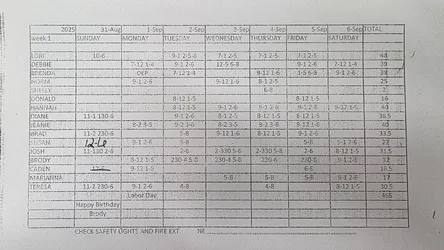 2025 31-Aug 1-Sep 2-Sep 3-Sep 4-Sep 5-Sep 6-Sep TOTAL
week 1 SUNDAY MONDAY TUESDAY WEDNESDAY THURSDAY FRIDAY SATURDAY
LORI 10-6 9-1 2-5-8 7-1 2-5 7-1 2-5 7-1 2-5
DEBBIE 7-12 1-4 9-1 2-6 12-5 6-8 9-1 2-6 7-12 1-4 39
BRENDA 7-12 1-4 8-12 1-6 9-1 2-6 39
NORM 9-1 2-6 9-12 1-6 8-1 2-5 25
SHELLY 6-8 2
DONALD 8-12 1-5 8-12 1-5 16
HANNAH 8-12 1-5 9-1 2-6 9-1 2-6 8-12 1-5 40
DIANE 11-1 130-6 9-1 2-6
JEANIE 8-2 3-5 9-2 3-6 8-2 3-5 9-2 3-6 40
BRAD 11-2 230-6 5-8 9-12 1-6 8-12 1-5 8-12 1-5 33.5
SUSAN 12-6 9-1 2-6 5-8 5-8 9-1 2-6 27
JOSH 11-130 2-6 2-6 2-330 5-8 2-6 8-12 1-5 31.5
BRODY 8-12 1-5 230-4 5-8 230-4 5-8 230-6 230-8 9-1 2-6
CADEN 9-12 1-5 6-8 16.5
MARIANNA 5-8 5-8 9-1 2-5 17
TERESA 11-2 230-6 9-1 2-6 4-8 4-8 8-12 1-5 30.5
Labor Day
Happy Birthday
Brody
CHECK SAFETY LIGHTS AND FIRE EXT